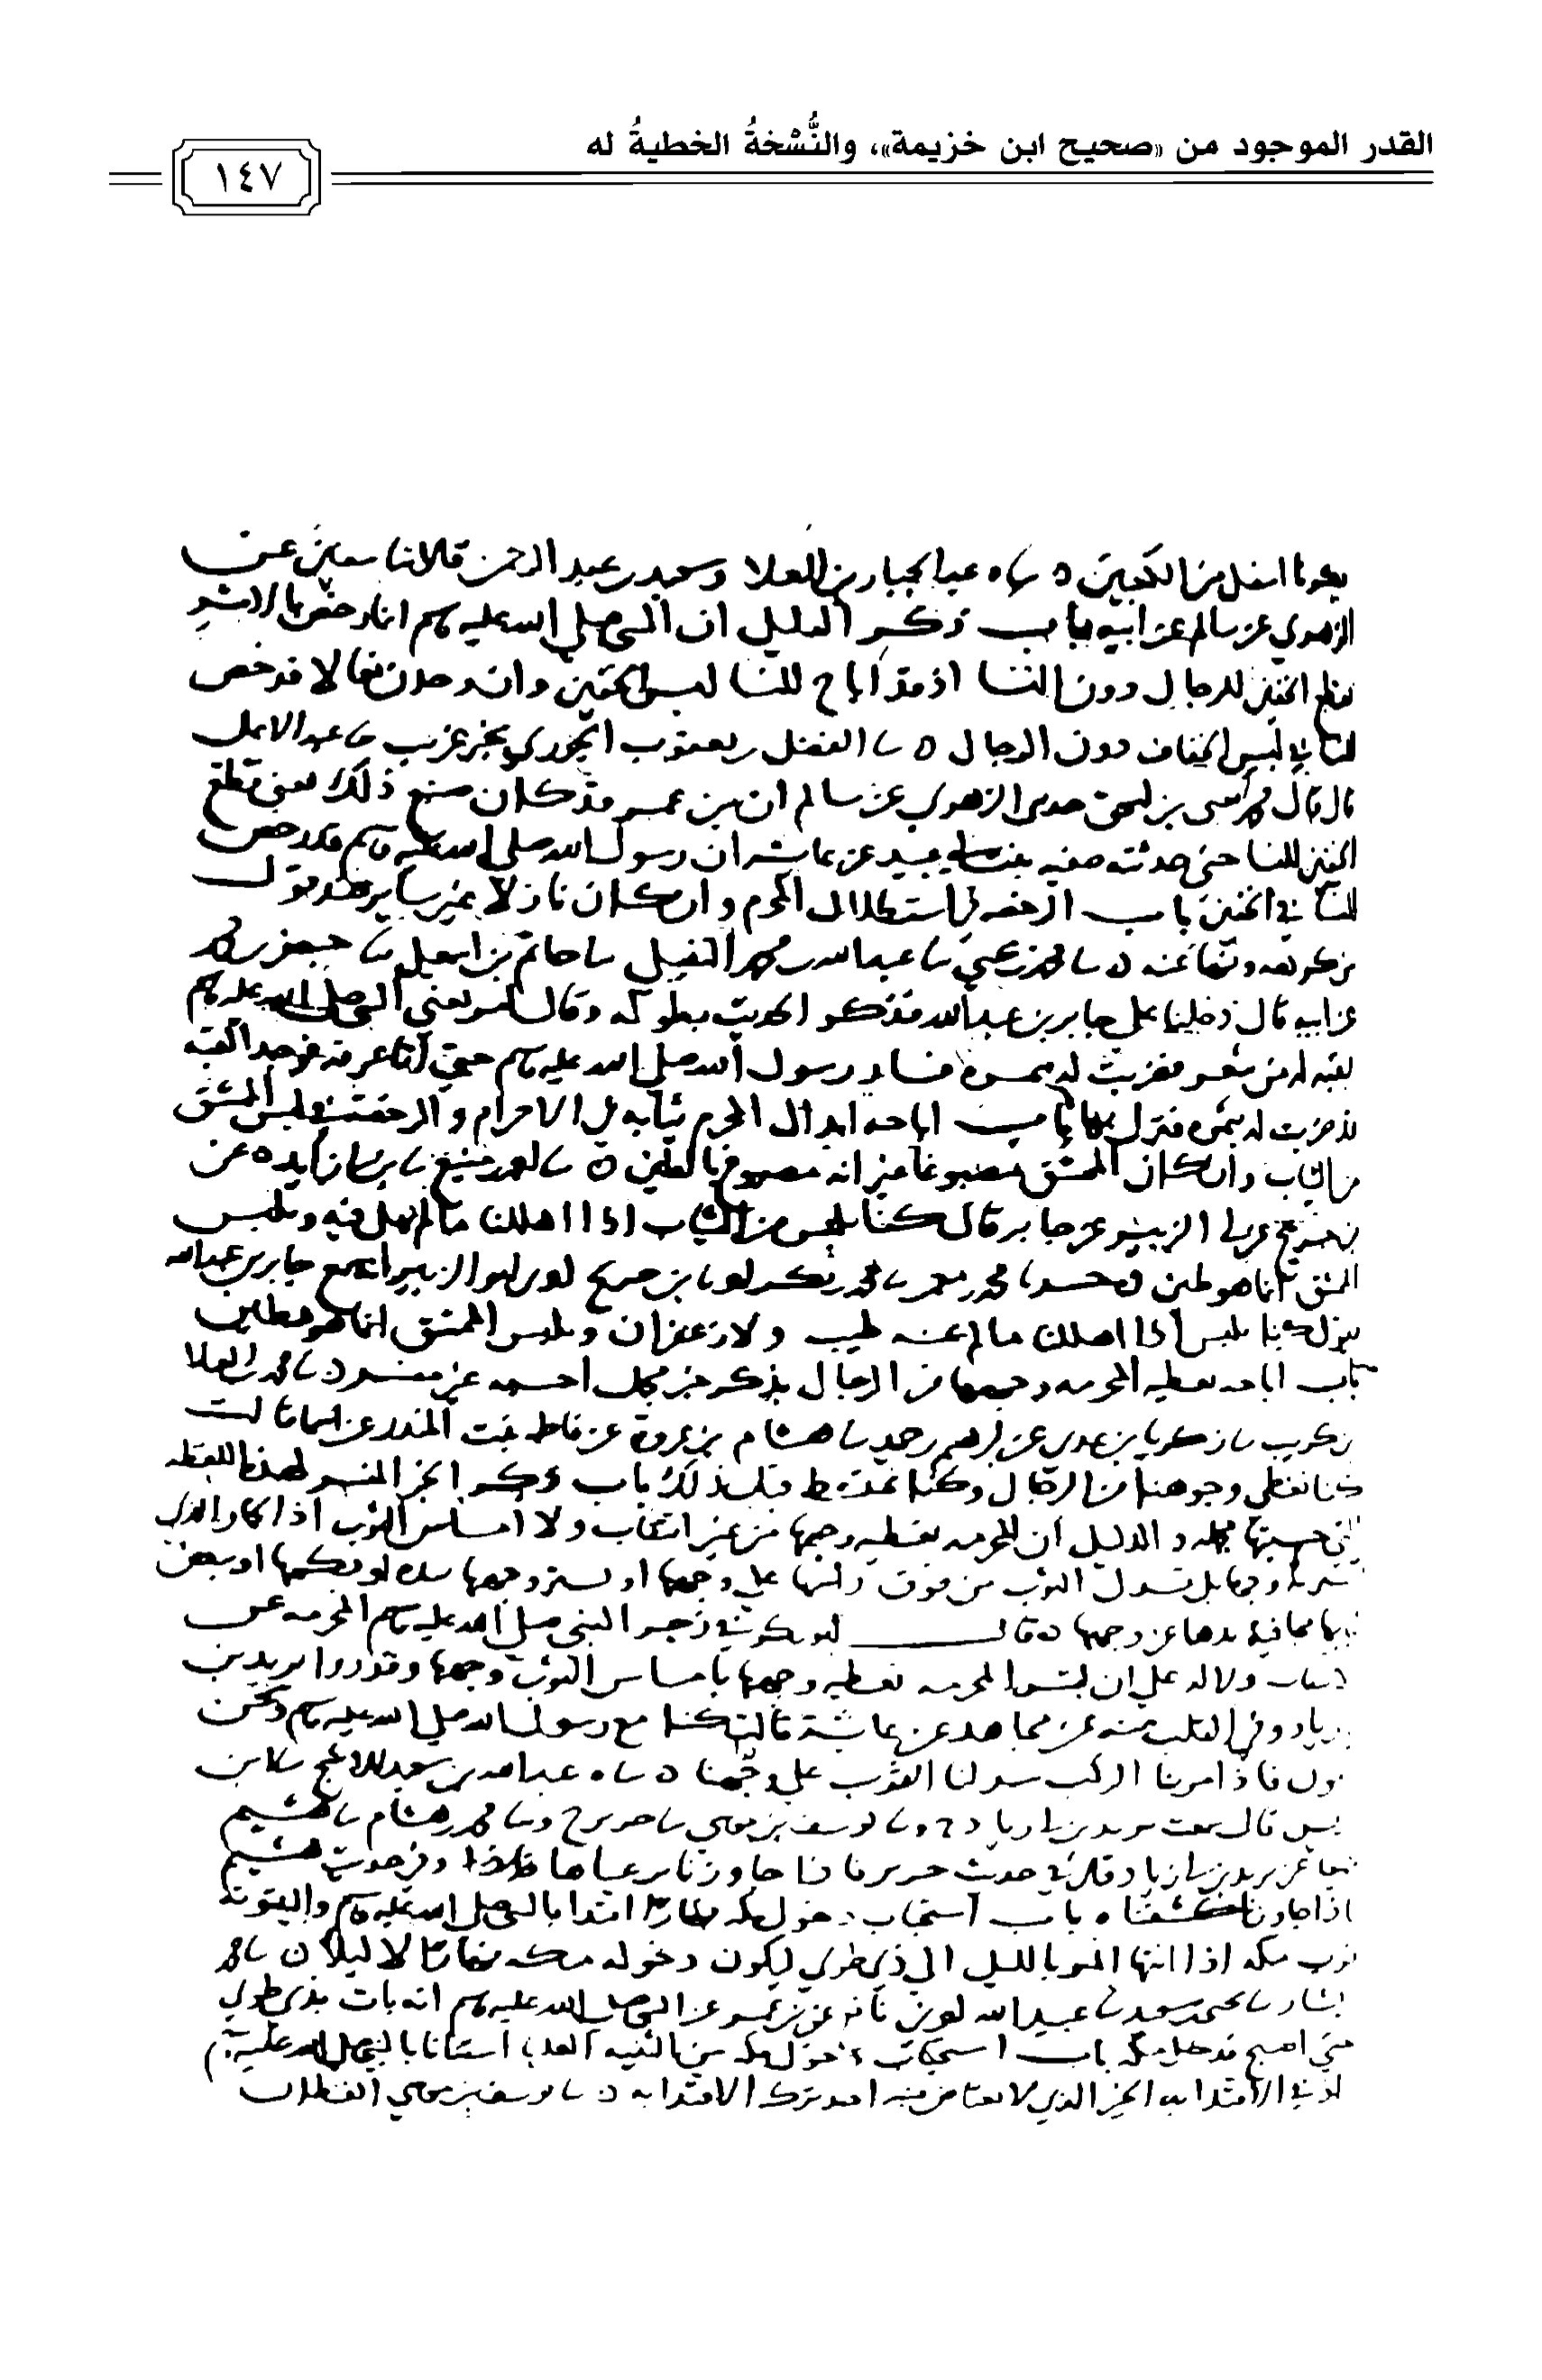 القدر الموجود من «صحيح ابن خزيمة»، والنُّسْخةُ الخطيةُ له
١٤٧
اسفل من الكعبين ه عبد الجبار بن العلا وسعيد بن عبد الرحمن قالا ثنا سفيان عن
الزهري عن سالم عن ابيه باب ذكر الدليل ان النبي صلى الله عليه انما رخص
الخفين للرجال دون النسا اذ قد اباح للنسا لبس الخفين وان
لبس الخفاف دون الرجال ه الفضل بن يعقوب الجزري عبد الاعلى
قال قال محمد بن اسحق حدثني الزهري عن سالم ان بن عمر قد كان صنع ذلك يعني قطع
الخفين للنسا حتى حدثته صفيه بنت ابي عبيد عن عايشه ان رسول الله صلى الله عليه قد رخص
للنسا في الخفين باب الرخصه في استظلال المحرم وان كان نازلا غير ساير
محمد بن يحيى عبد الله بن محمد النفيلي حاتم بن اسمعيل جعفر بن محمد
عن ابيه قال دخلنا على جابر بن عبد الله فذكر الحديث بطوله وقال امر يعني النبي صلى الله عليه
بقبه له من شعر فضربت له بنمره فسار رسول الله صلى الله عليه حتى اتا عرفه فوجد القبه
قد ضربت له بنمره فنزل بها باب اباحه ابدال المحرم ثيابه في الاحرام والرخصه في لبس الممشق
من الثياب وان كان الممشق مصبوغا غير انه مصبوغ بالطين ه احمد بن منيع عن
بن جريج عن ابي الزبير عن جابر قال كنا نلبس من الثياب اذا اهللنا ما لم نهل فيه ونلبس
الممشق انما هو طين محمد بن معمر محمد بن بكر بن جريج ابو الزبير انه سمع جابر بن عبد الله
يقول كنا نلبس اذا اهللنا ما لم طيب ولا زعفران ونلبس الممشق انما هو بطين
باب اباحه تغطيه المحرمه وجهها من الرجال بذكر خبر مجمل احسبه غير مفسر ه محمد بن العلا
بن كريب زكريا بن عدي عن ابرهيم بن حميد هشام بن عروة عن فاطمه بنت المنذر عن اسما قالت
كنا نغطي وجوهنا من الرجال وكنا نمتشط قبل ذلك باب ذكر الخبر المفسر لهذه اللفظه
التي حسبتها مجمله والدليل ان للمحرمه تغطيه وجهها من غير انتقاب ولا امساس الثوب
وجهها بل تسدل الثوب من فوق راسها على وجهها او تستر وجهها بيدها او بكمها او ببعض
ثيابها مجافيه يدها عن وجهها قال ابو بكر في زجر النبي صلى الله عليه المحرمه عن
دلاله على ان ليس للمحرمه تغطيه وجهها بامساس الثوب وجهها وقد روا يزيد بن
زياد وفي القلب منه عن مجاهد عن عايشة قالت كنا مع رسول الله صلى الله عليه ونحن
فاذا مر بنا الركب سدلنا الثوب على وجهنا ه عبد الله بن سعيد الاشج بن
قال سمعت يزيد بن ابي زياد يوسف بن موسى جرير ح محمد بن هشام هشيم
عن يزيد بن ابي زياد في حديث جرير فاذا جاوزنا وفي حديث هشيم
اذا جاوزنا كشفناه باب استحباب دخول مكه نهارا اقتدا بالنبي صلى الله عليه والبيتوته
قرب مكه اذا انتها المر بالليل الى ذي طوى ليكون دخوله مكه نهارا لا ليلا محمد
بشار يحيى بن سعيد عبيد الله نافع عن بن عمر عن النبي صلى الله عليه انه بات بذي طوى
حتى اصبح فدخل مكه باب استحباب دخول مكه من الثنيه العليا استنانا بالنبي صلى الله عليه
اذ في الاقتدا به الخير الذي لا يعتاض منه احد ترك الاقتدا به يوسف بن موسى القطان